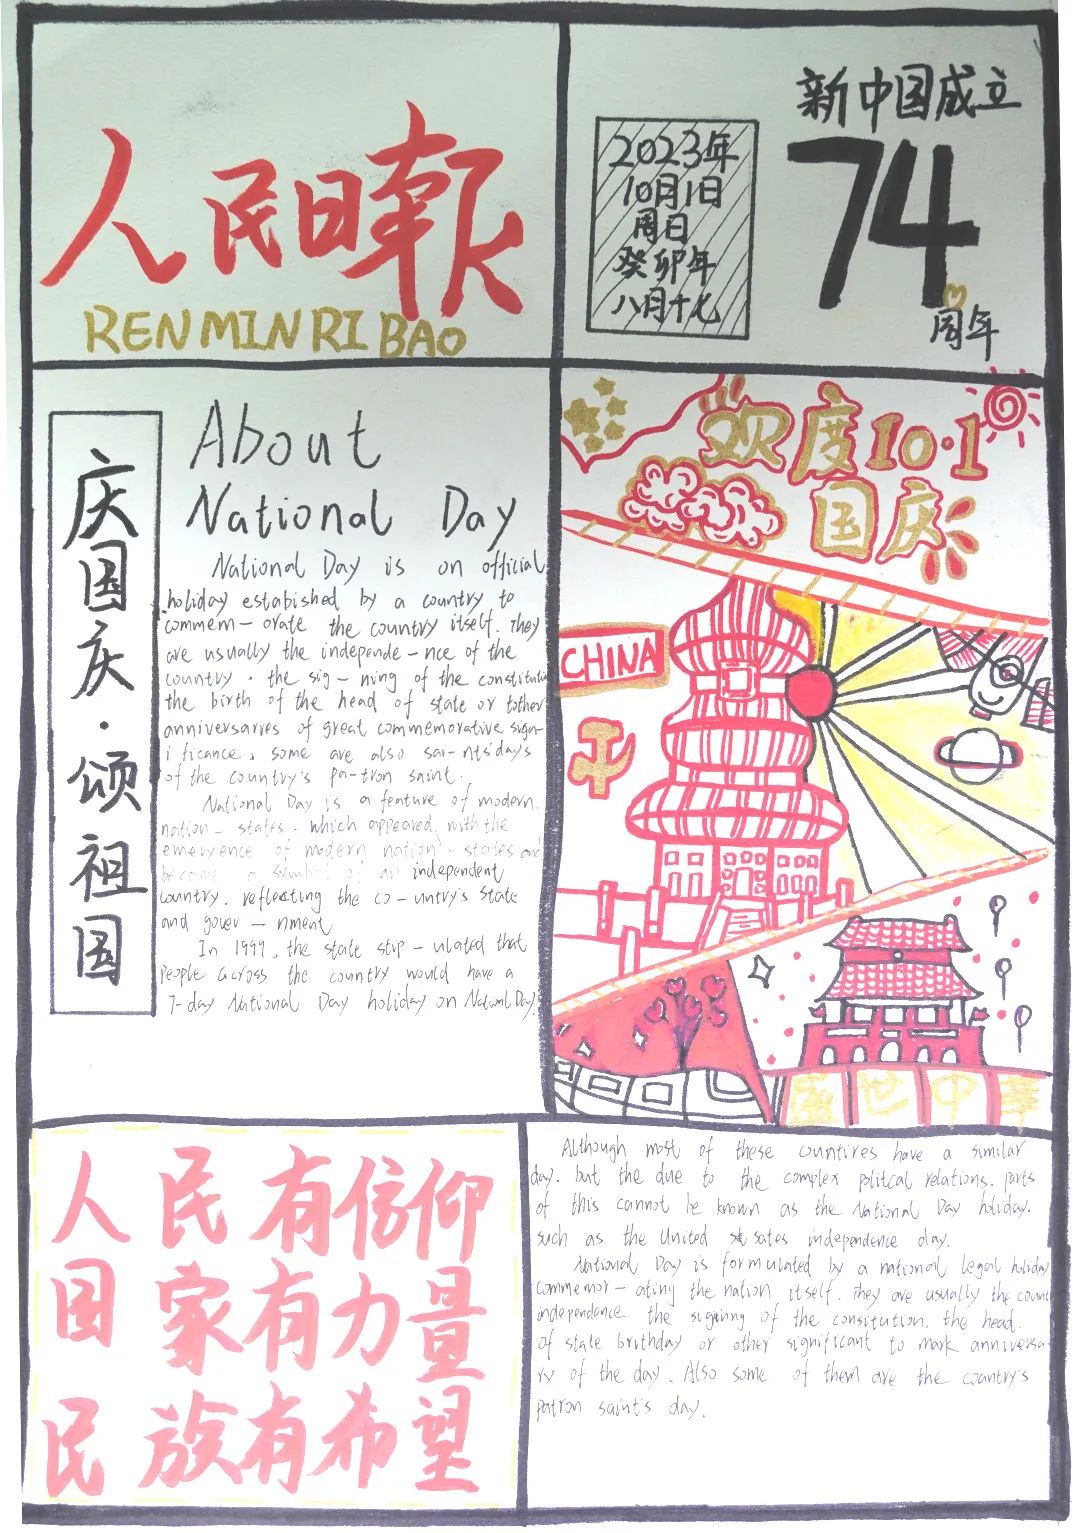 人民日報
RENMINRI BAO
新中国成立
74
周年
2023年
10月1日
周日
癸卯年
八月十七
庆国庆·颂祖国
About
National Day
National Day is on official
holiday estabished by a country to
commem- orate the country itself. They
are usually the independe-nce of the
country. the sig-ning of the constituti
the birth of the head of state or tother
anniversarres of great commemorative sign-
ificance, some are also sai-nts'days
of the country's pa-tron saint.
National Day is a feature of modern
nation- states. which appeared with the
emeryence of modern nation-states and
become a symbol of an independent
country. reflecting the co-untry's state
and gover-nment
In 1999, the state stip-ulated that
people across the country would have a
7-day National Day holiday on Natwnal Day.
欢度10·1
国庆
CHINA
盛世中华
人民有信仰
国家有力量
民族有希望
Although most of these countires have a similar
day. but the due to the complex politcal relations. parts
of this cannot be known as the National Day holiday.
such as the United sates independence day.
National Day is formulated by a national legal holiday
commemor-ating the nation itself. They are usually the count
independence the signing of the consitution. the head.
of state brithday or other significant to mark anniversa-
ry of the day. Also some of them are the country's
patron saint's day.